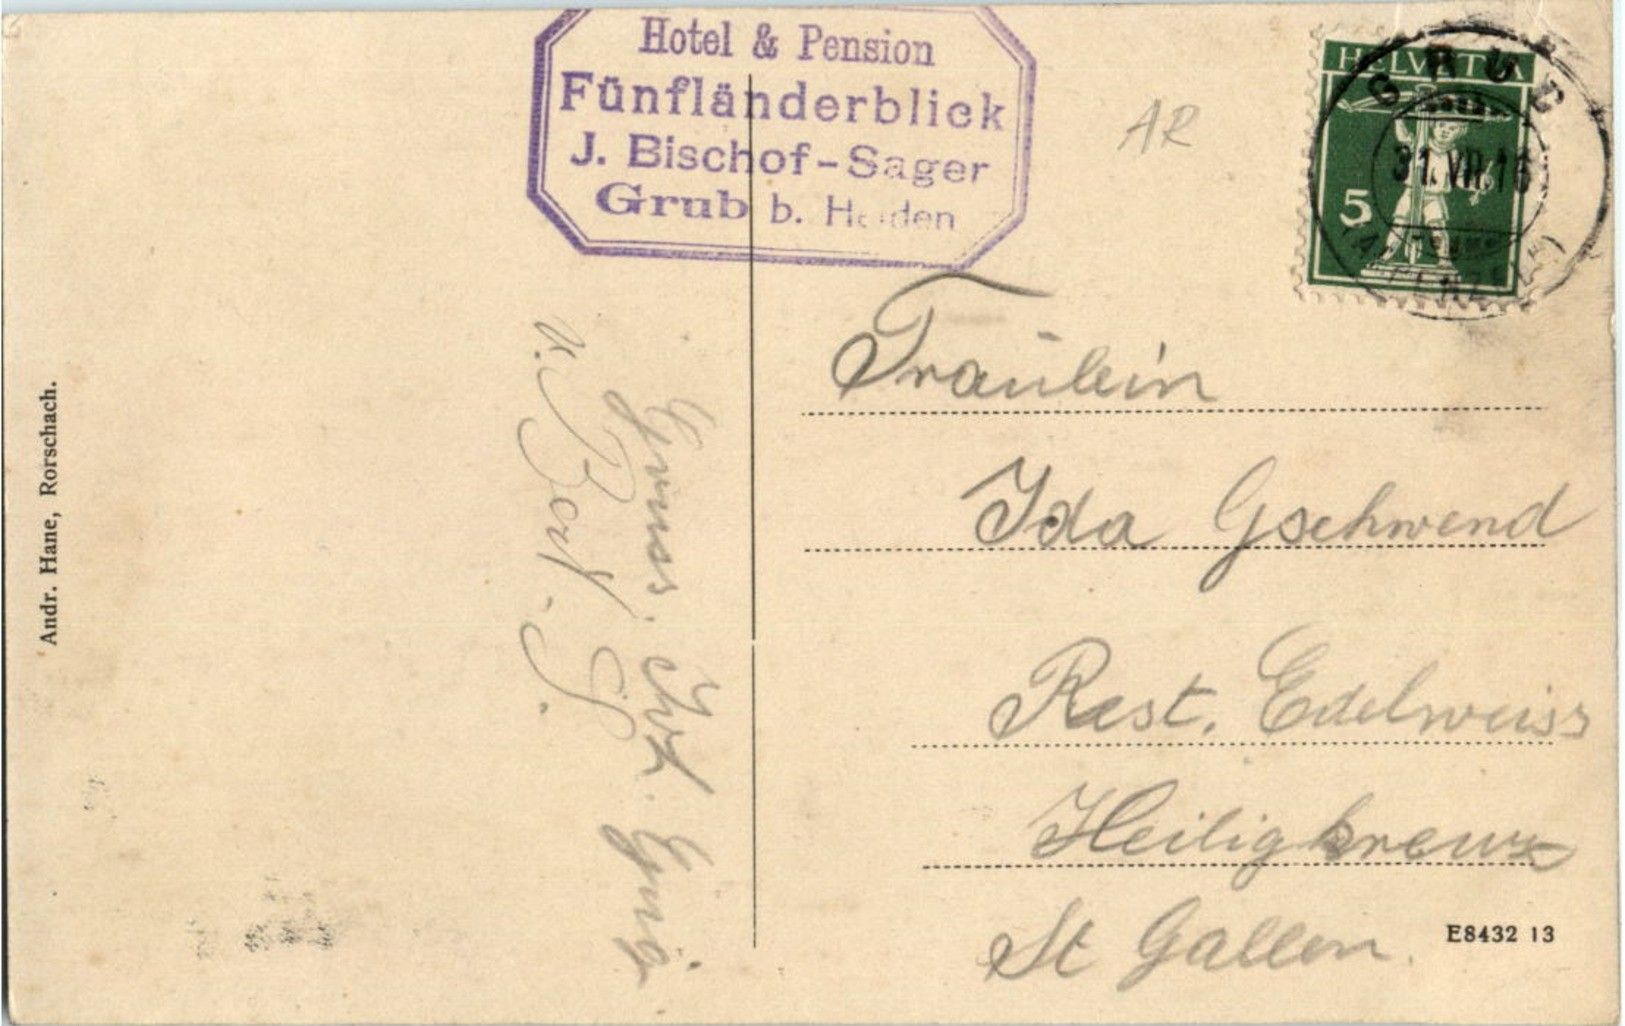 Hotel & Pension
Fünfländerblick
J. Bischof-Sager
Grub b. Heiden
AR
HELVETIA
5
GRUB
31.VII.16
(APPENZELL)
Fräulein
Ida Gschwend
Rest. Edelweiss
Heiligkreuz
St Gallen.
Gruss,
v.
Andr. Hane, Rorschach.
E8432 13